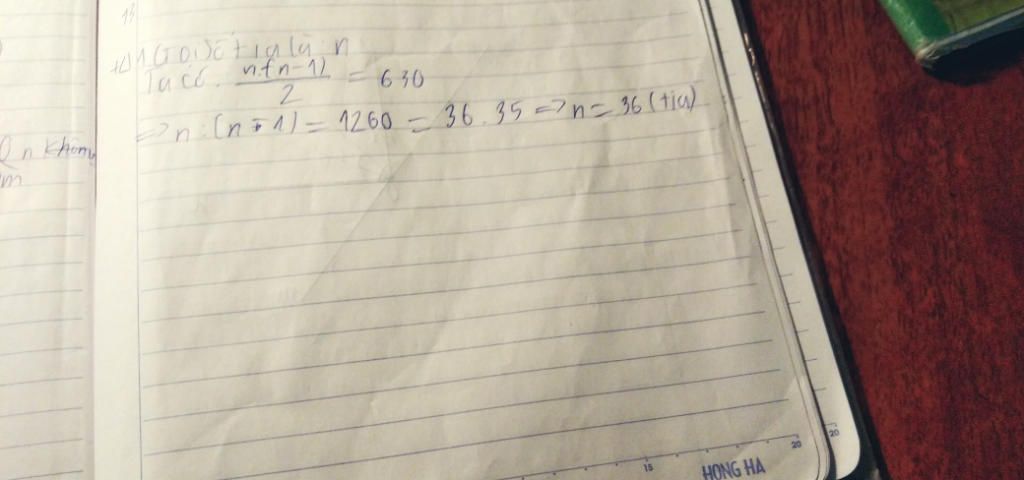 13
Gọi số tia là: n
Ta có. n.(n-1)/2 = 630
=> n.(n-1) = 1260 = 36.35 => n = 36 (tia)
n không
m
15
20
20
HONG HA